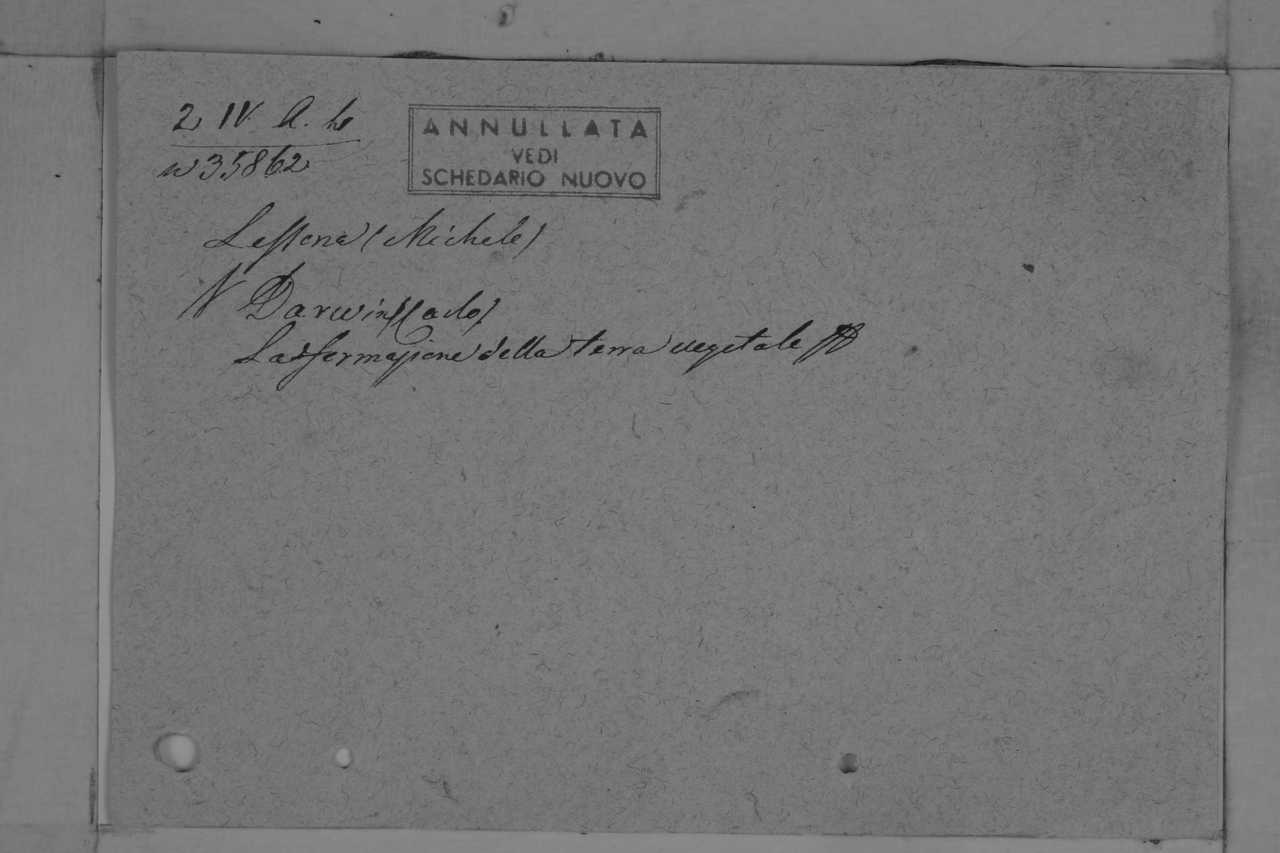 2 IV. A. h
n 35862
ANNULLATA
VEDI
SCHEDARIO NUOVO
Lessona (Michele)
V Darwin (Carlo)
La formazione della terra vegetale